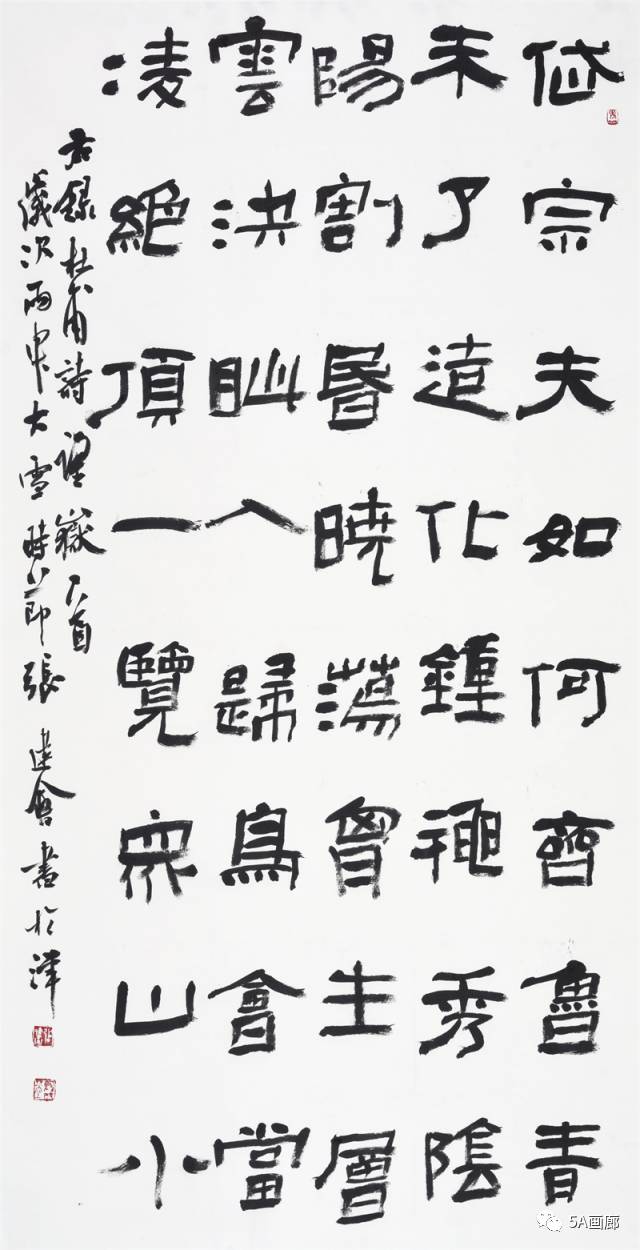 岱宗夫如何齊魯青
未了造化鍾神秀陰
陽割昬曉蕩胷生層
雲決眦入歸鳥會當
凌絶頂一覽眾山小
右錄杜甫詩望嶽一首
歲次丙申大雪時節張建會書於津
5A画廊